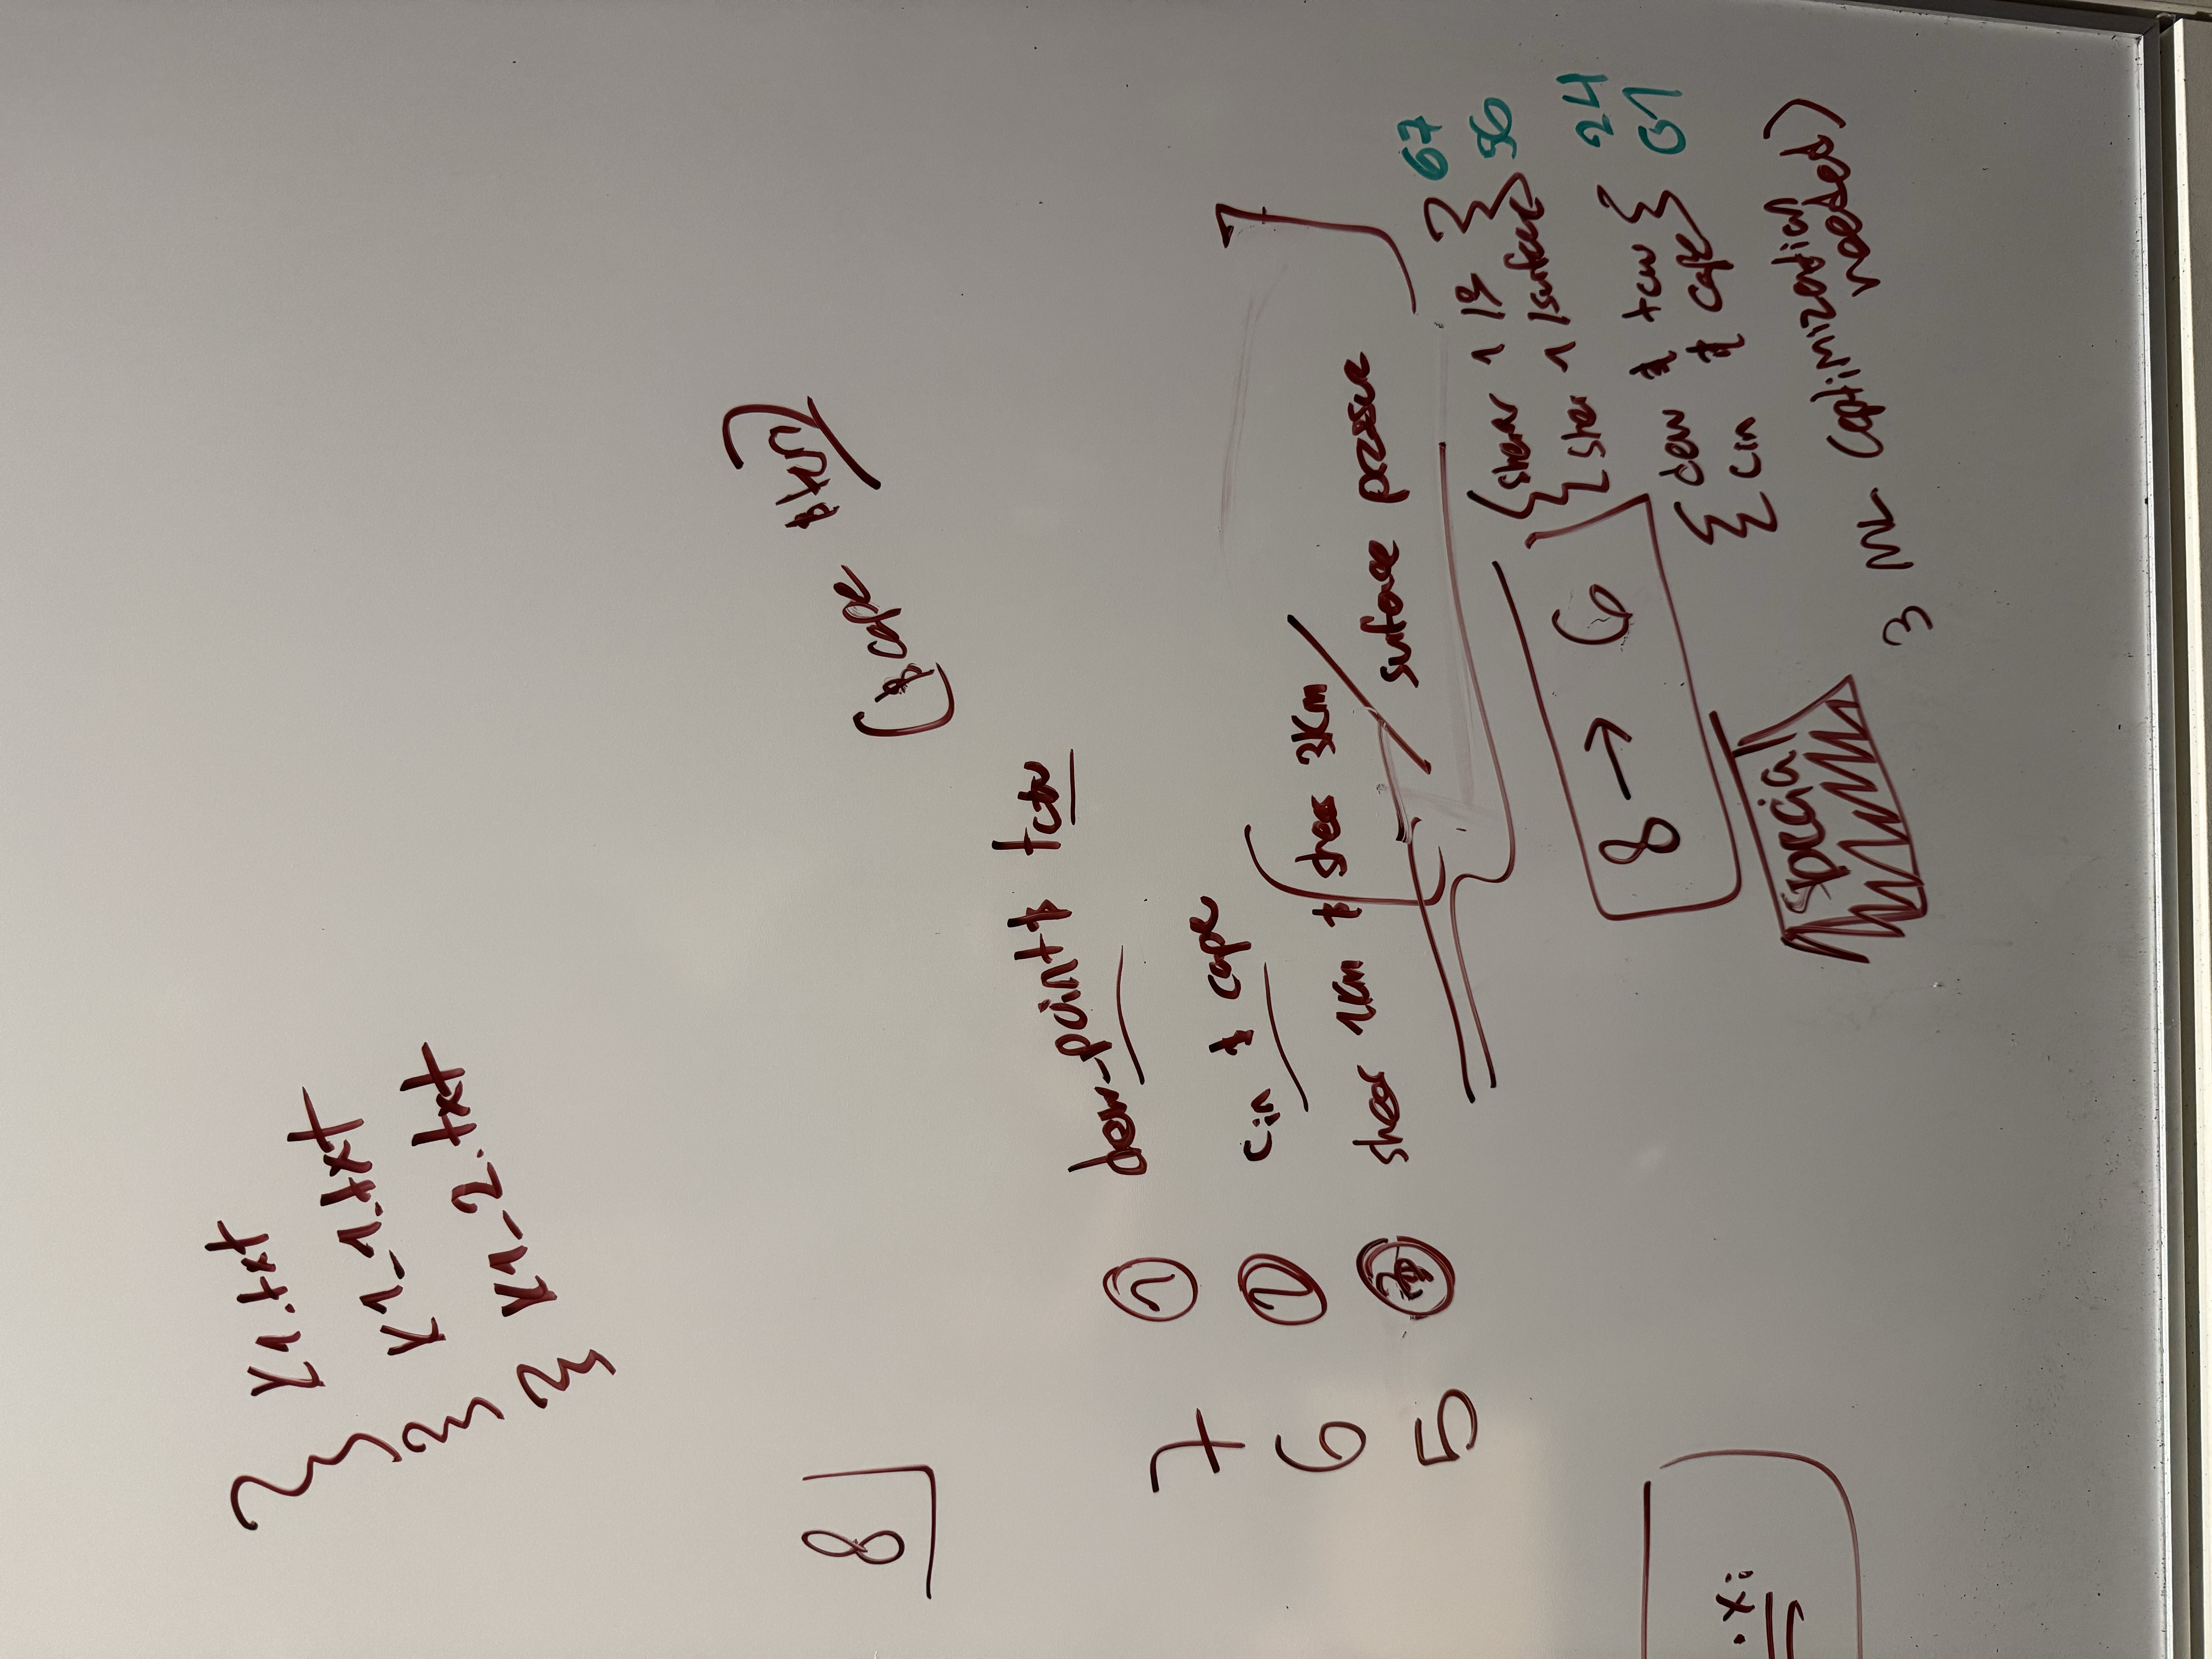 r1.txt
r1-1.txt
r1-2.txt
8
(# cape # tcw)
7 ① dew-point # tcw
6 ① cin # cape
5 shear 1km # shear 3km
surface pressure
8 → 6
{shear 1 19 } 67
{shear 1 /surface} 56
{dew # tcw } 24
{cin # cape} 01
special
3 ML (optimization needed)
x: